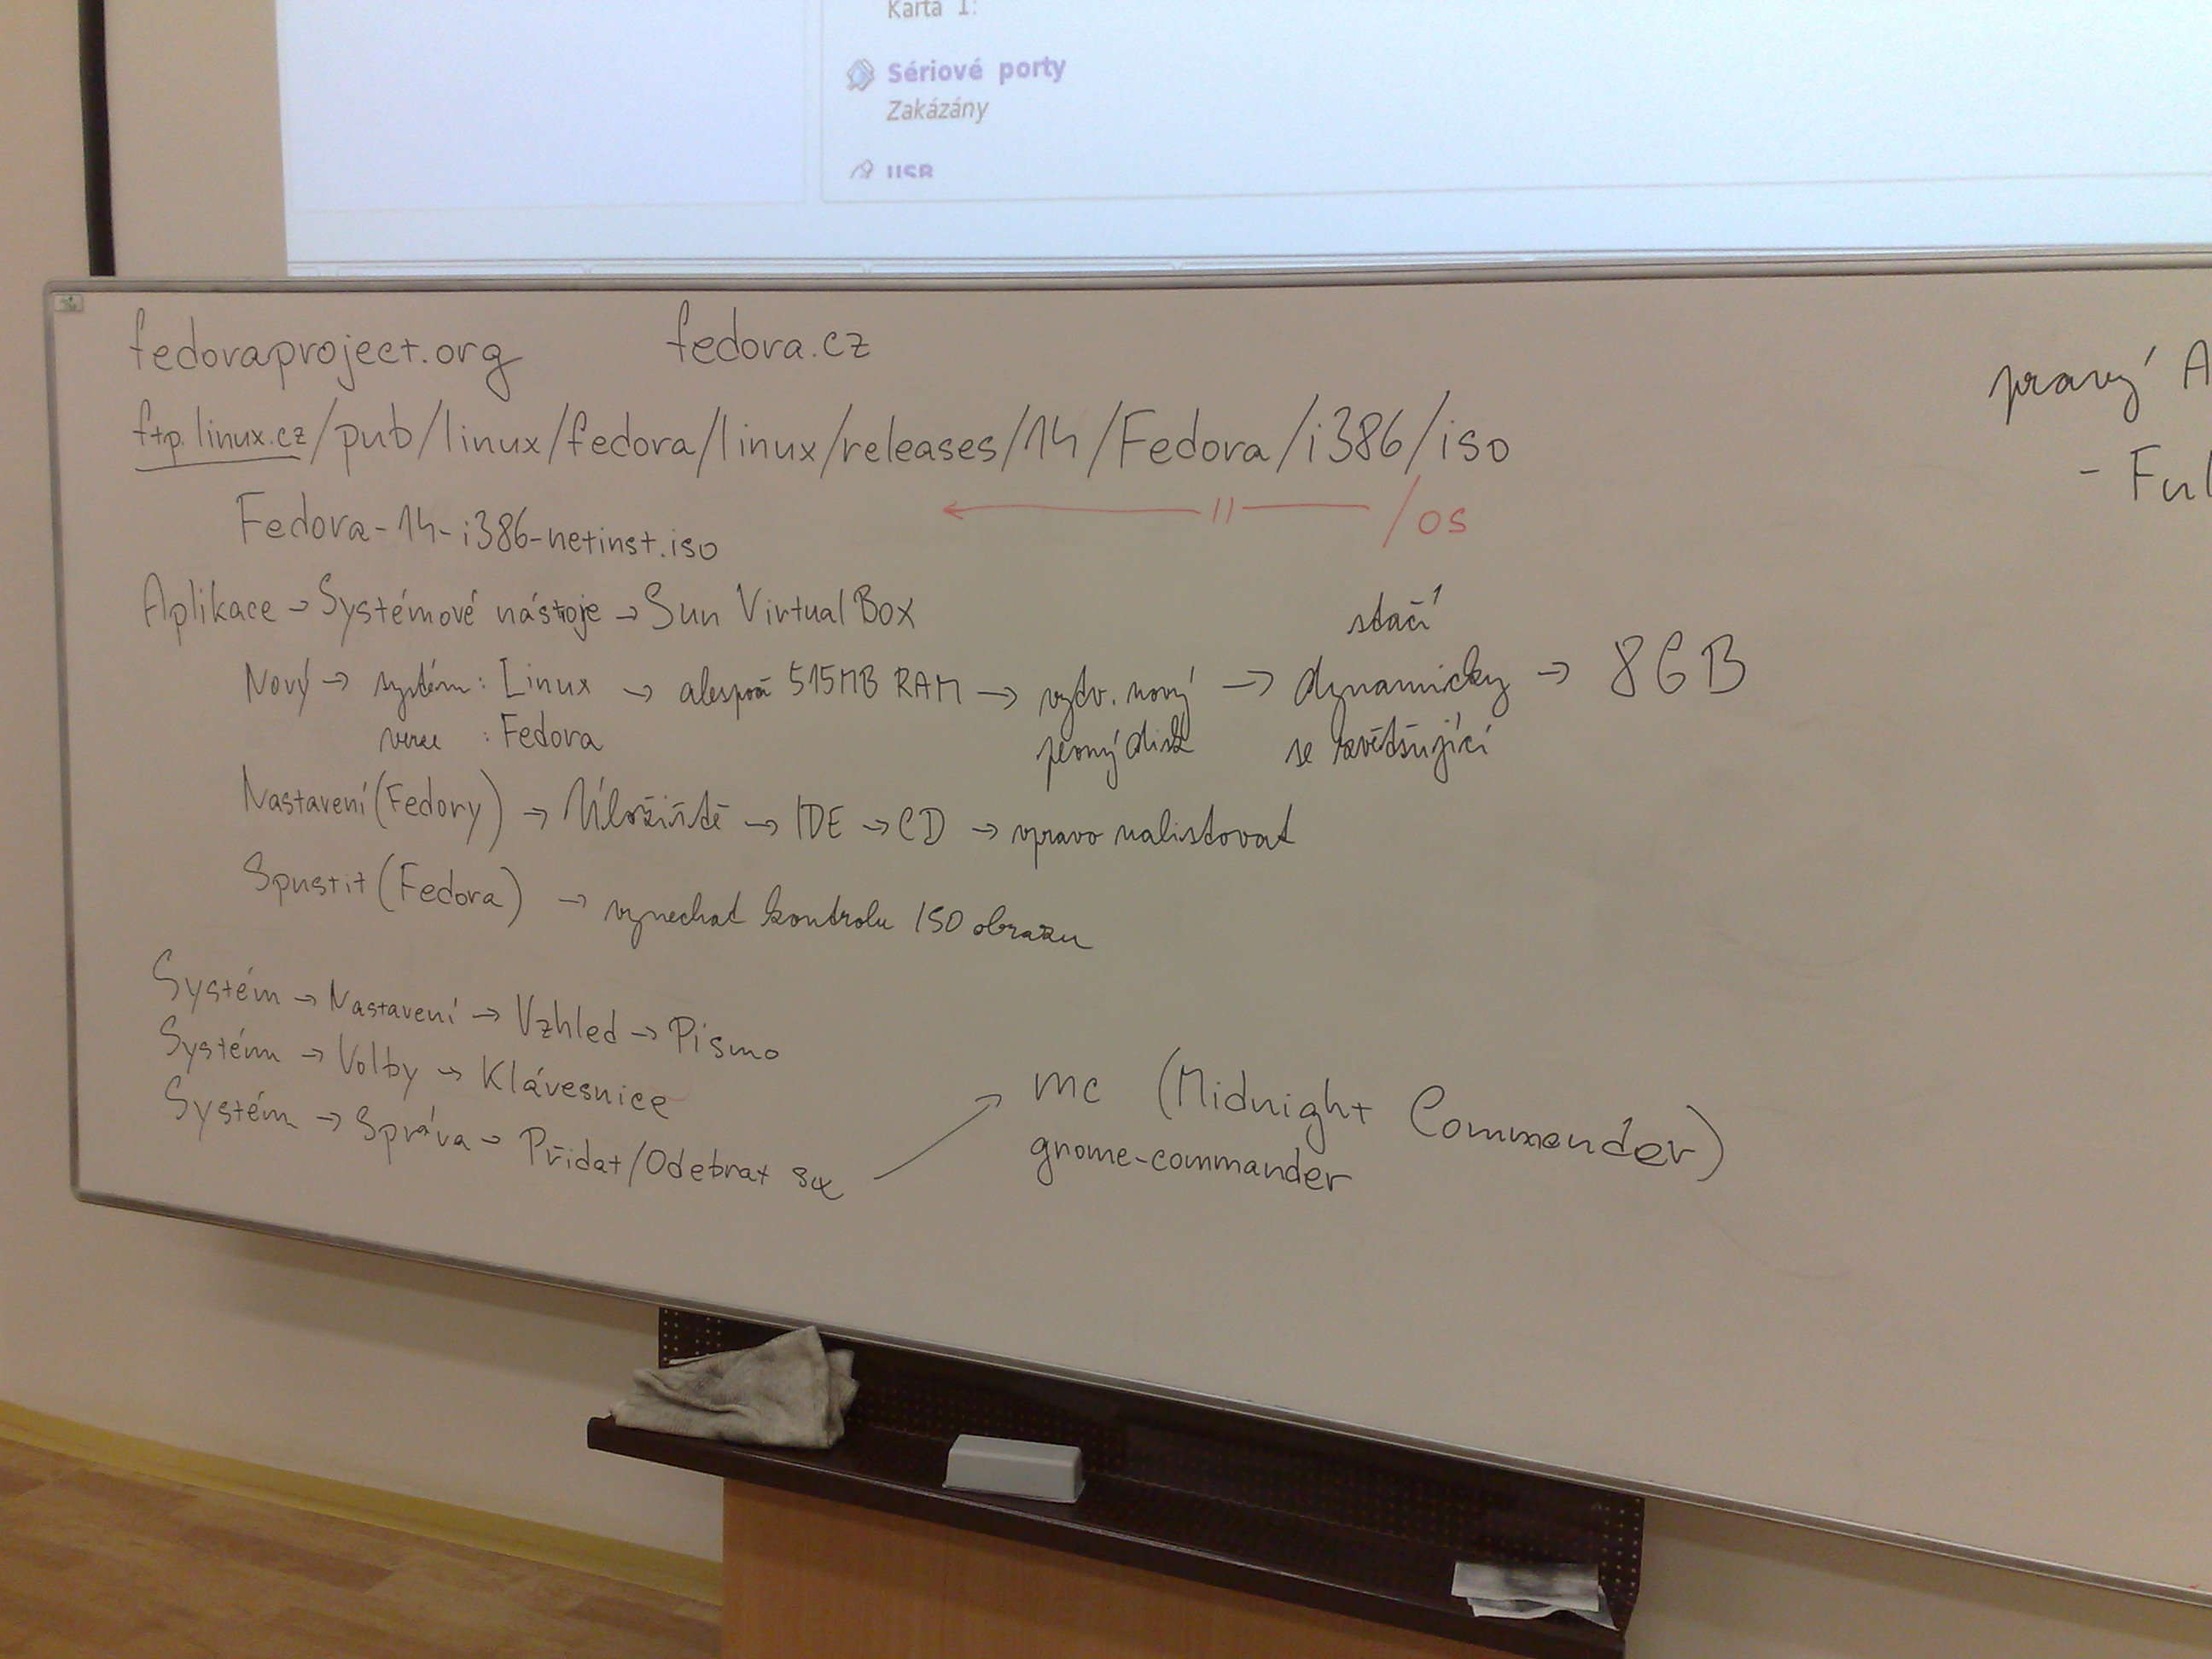 Karta 1:
Sériové porty
Zakázány
USB
fedoraproject.org fedora.cz
ftp.linux.cz/pub/linux/fedora/linux/releases/14/Fedora/i386/iso
← 〃 /os
Fedora-14-i386-netinst.iso
Aplikace → Systémové nástroje → Sun VirtualBox
stačí
Nový → systém: Linux → alespoň 515MB RAM → vytv. nový → dynamicky → 8GB
verze : Fedora pevný disk se zvětšující
Nastavení (Fedory) → Úložiště → IDE → CD → vpravo nalistovat
Spustit (Fedora) → vynechat kontrolu ISO obrazu
Systém → Nastavení → Vzhled → Písmo
Systém → Volby → Klávesnice
Systém → Správa → Přidat/Odebrat sw
mc (Midnight Commander)
gnome-commander
pravý A
- Ful